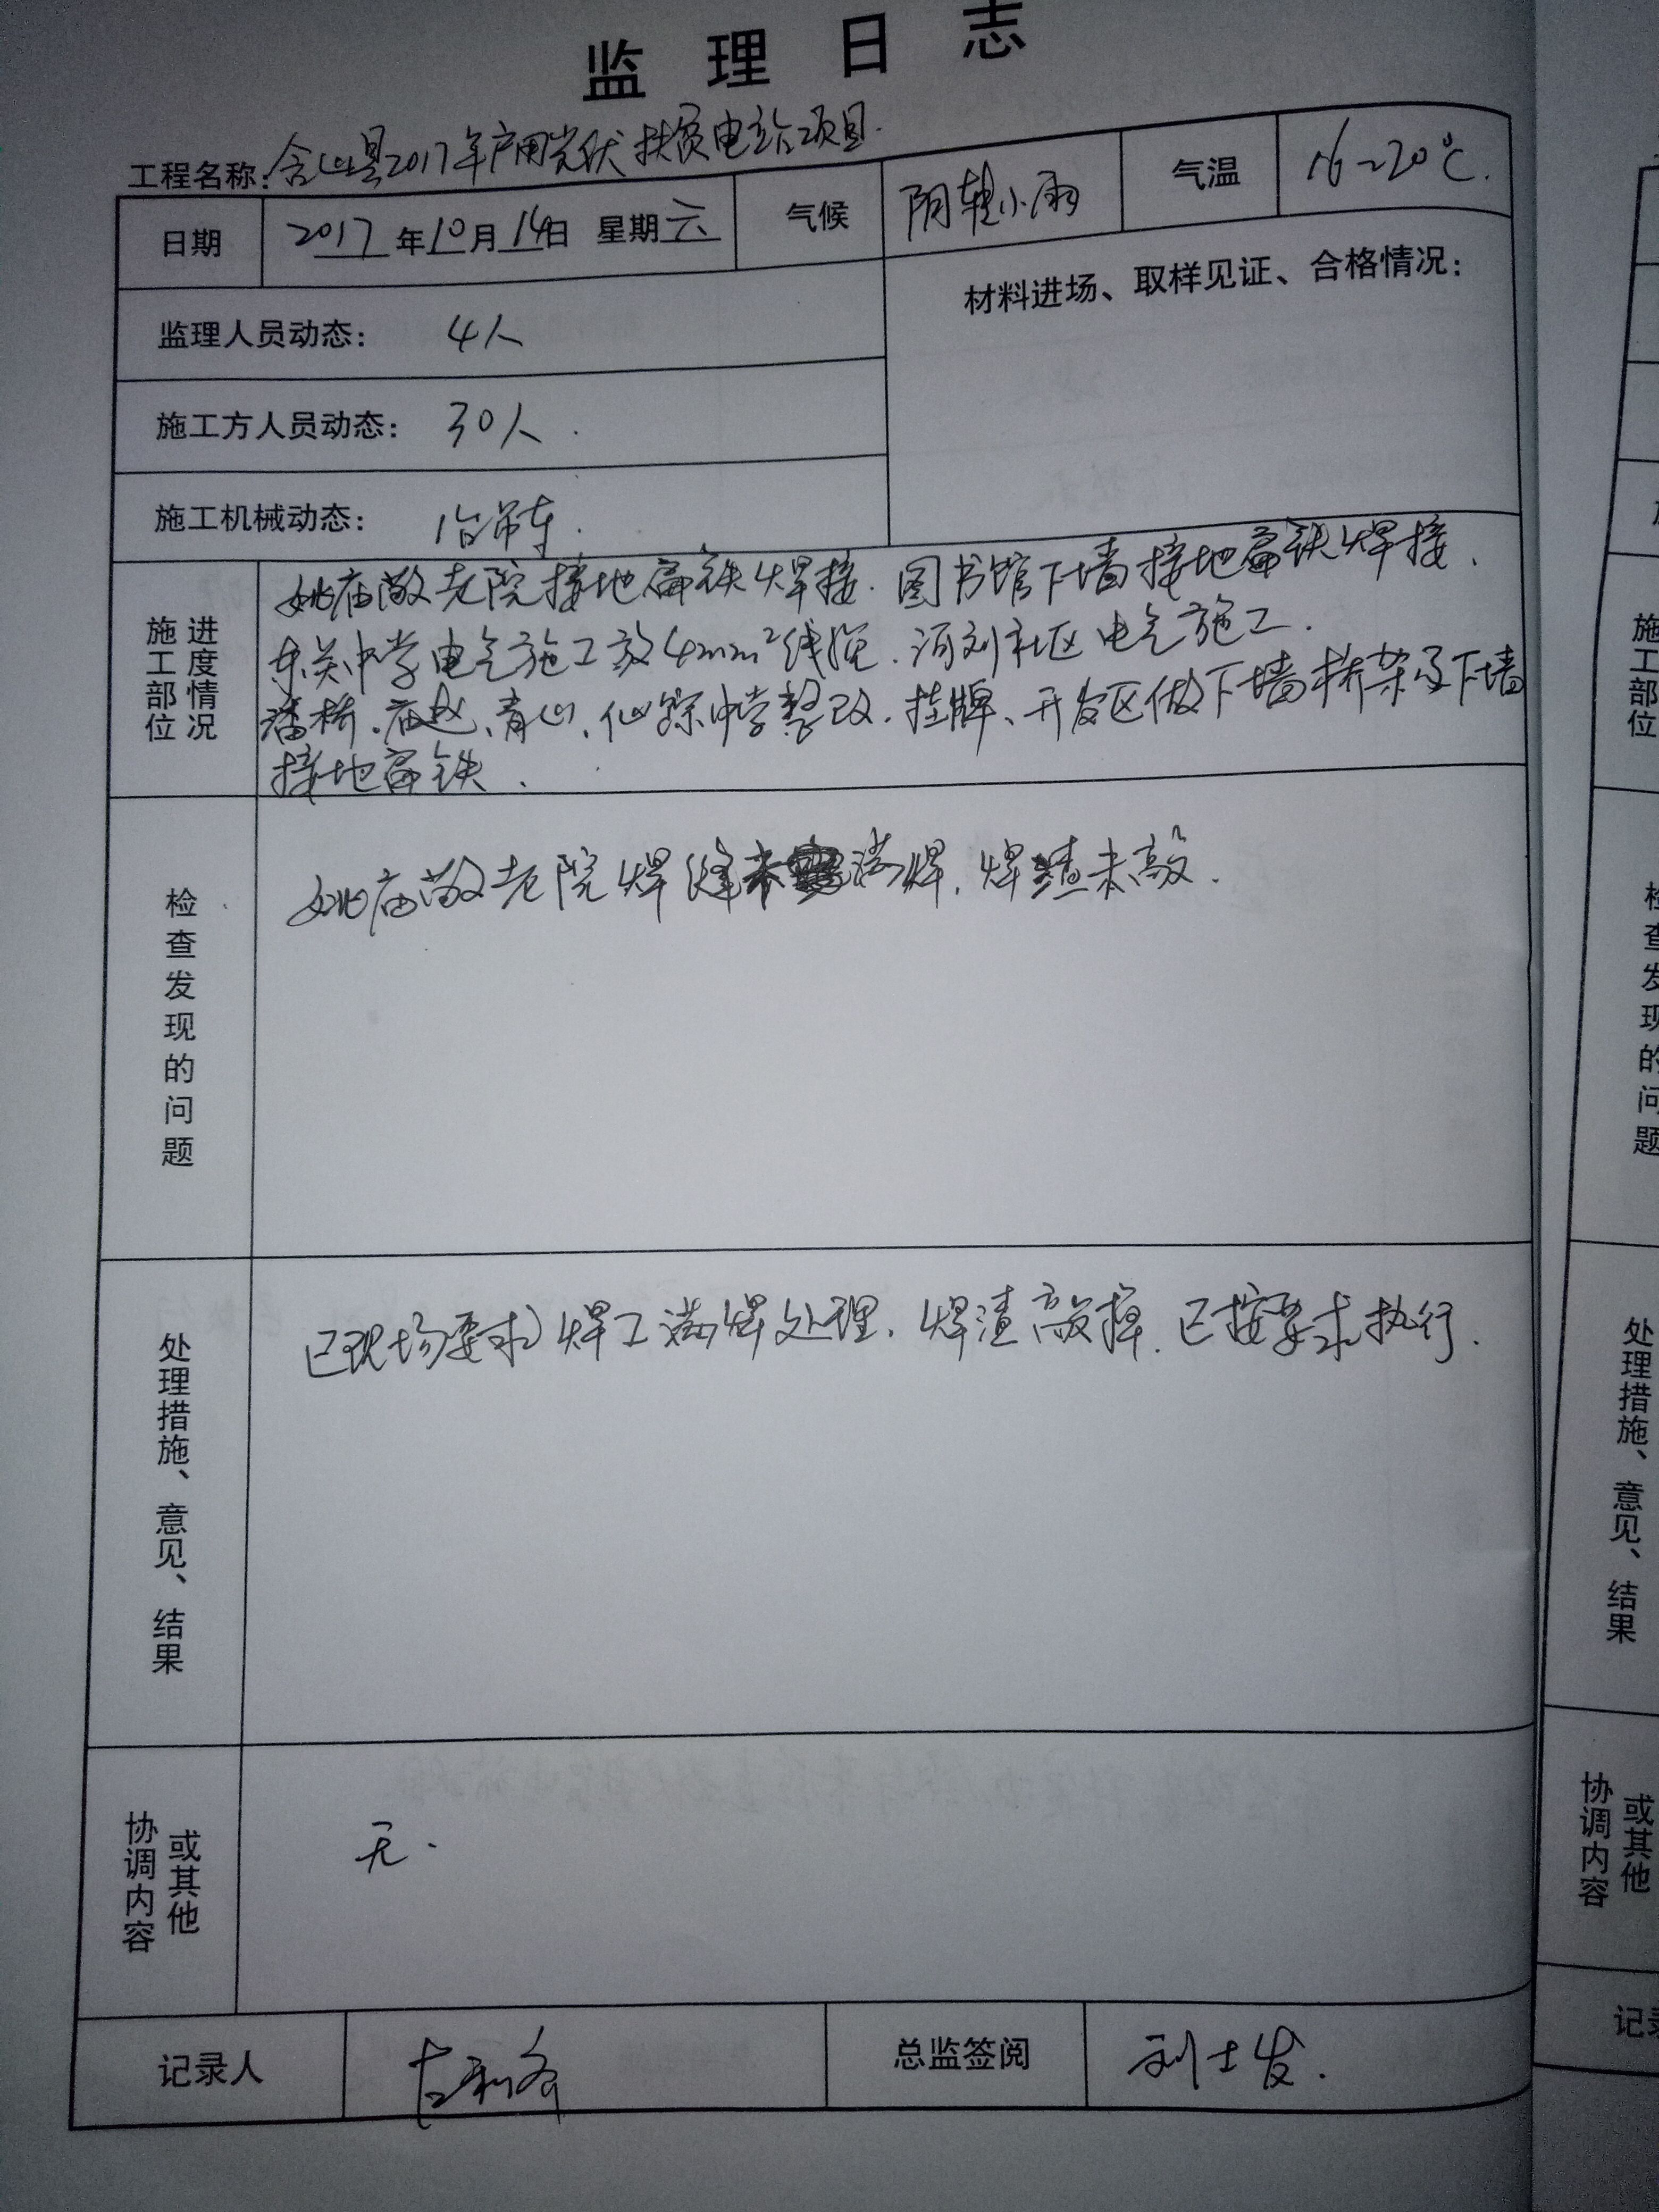 监理日志
工程名称：含山县2017年户用光伏扶贫电站项目.
日期 2017年10月14日 星期六 气候 阴转小雨 气温 16~20℃.
监理人员动态： 4人
材料进场、取样见证、合格情况：
施工方人员动态： 30人.
施工机械动态： 1台吊车.
施工部位 进度情况
姚庙敬老院接地扁铁焊接.图书馆下墙接地扁铁焊接.
东关中学电气施工放4mm²线缆.河刘社区电气施工.
潘桥、庙赵、青山、仙踪中学整改.挂牌、开发区做下墙桥架及下墙
接地扁铁.
检查发现的问题
姚庙敬老院焊缝未满焊,焊渣未敲.
处理措施、意见、结果
已现场要求焊工满焊处理,焊渣敲掉.已按要求执行.
协调内容 或其他
无.
记录人 总监签阅 刘士发.
施工部位
检查发现的问题
处理措施、意见、结果
协调内容 或其他